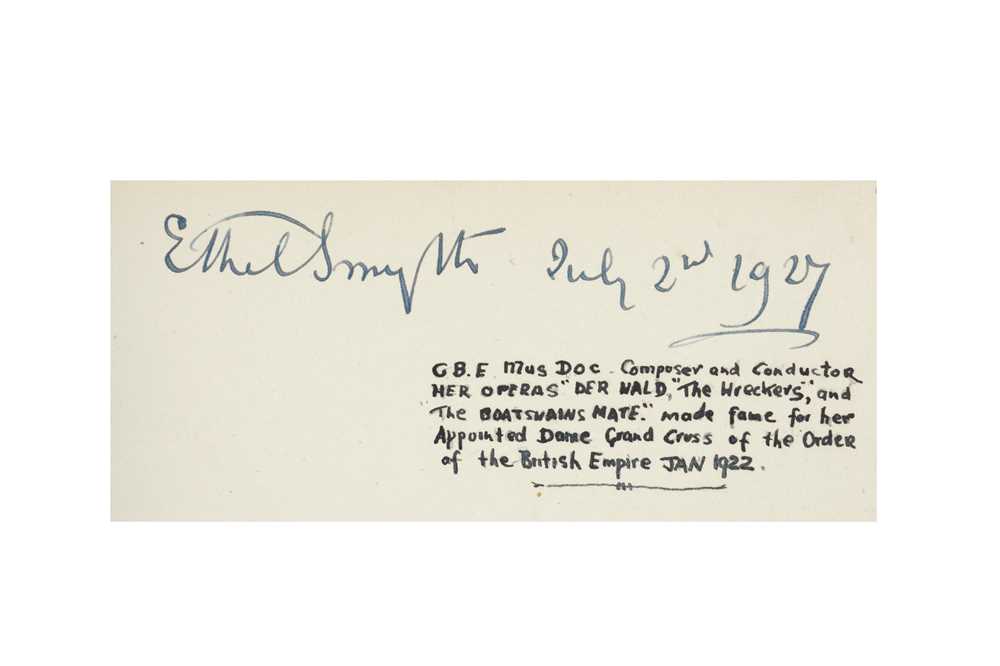 Ethel Smyth July 2nd 1927
G B.E Mus Doc. Composer and Conductor
HER OPERAS "DER WALD," "The Wreckers", and
"The BOATSWAINS MATE." made fame for her
Appointed Dame Grand Cross of the Order
of the British Empire JAN 1922.